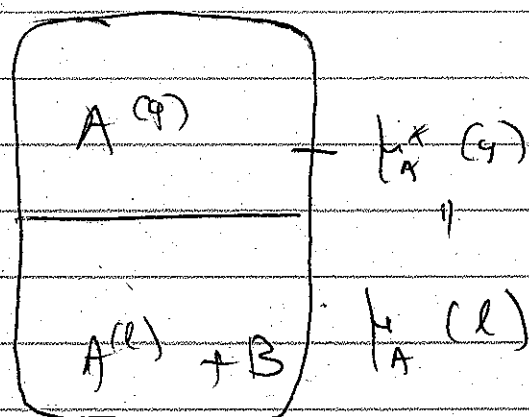 A (g) — μ*A (g)
||
A(l) + B μA (l)